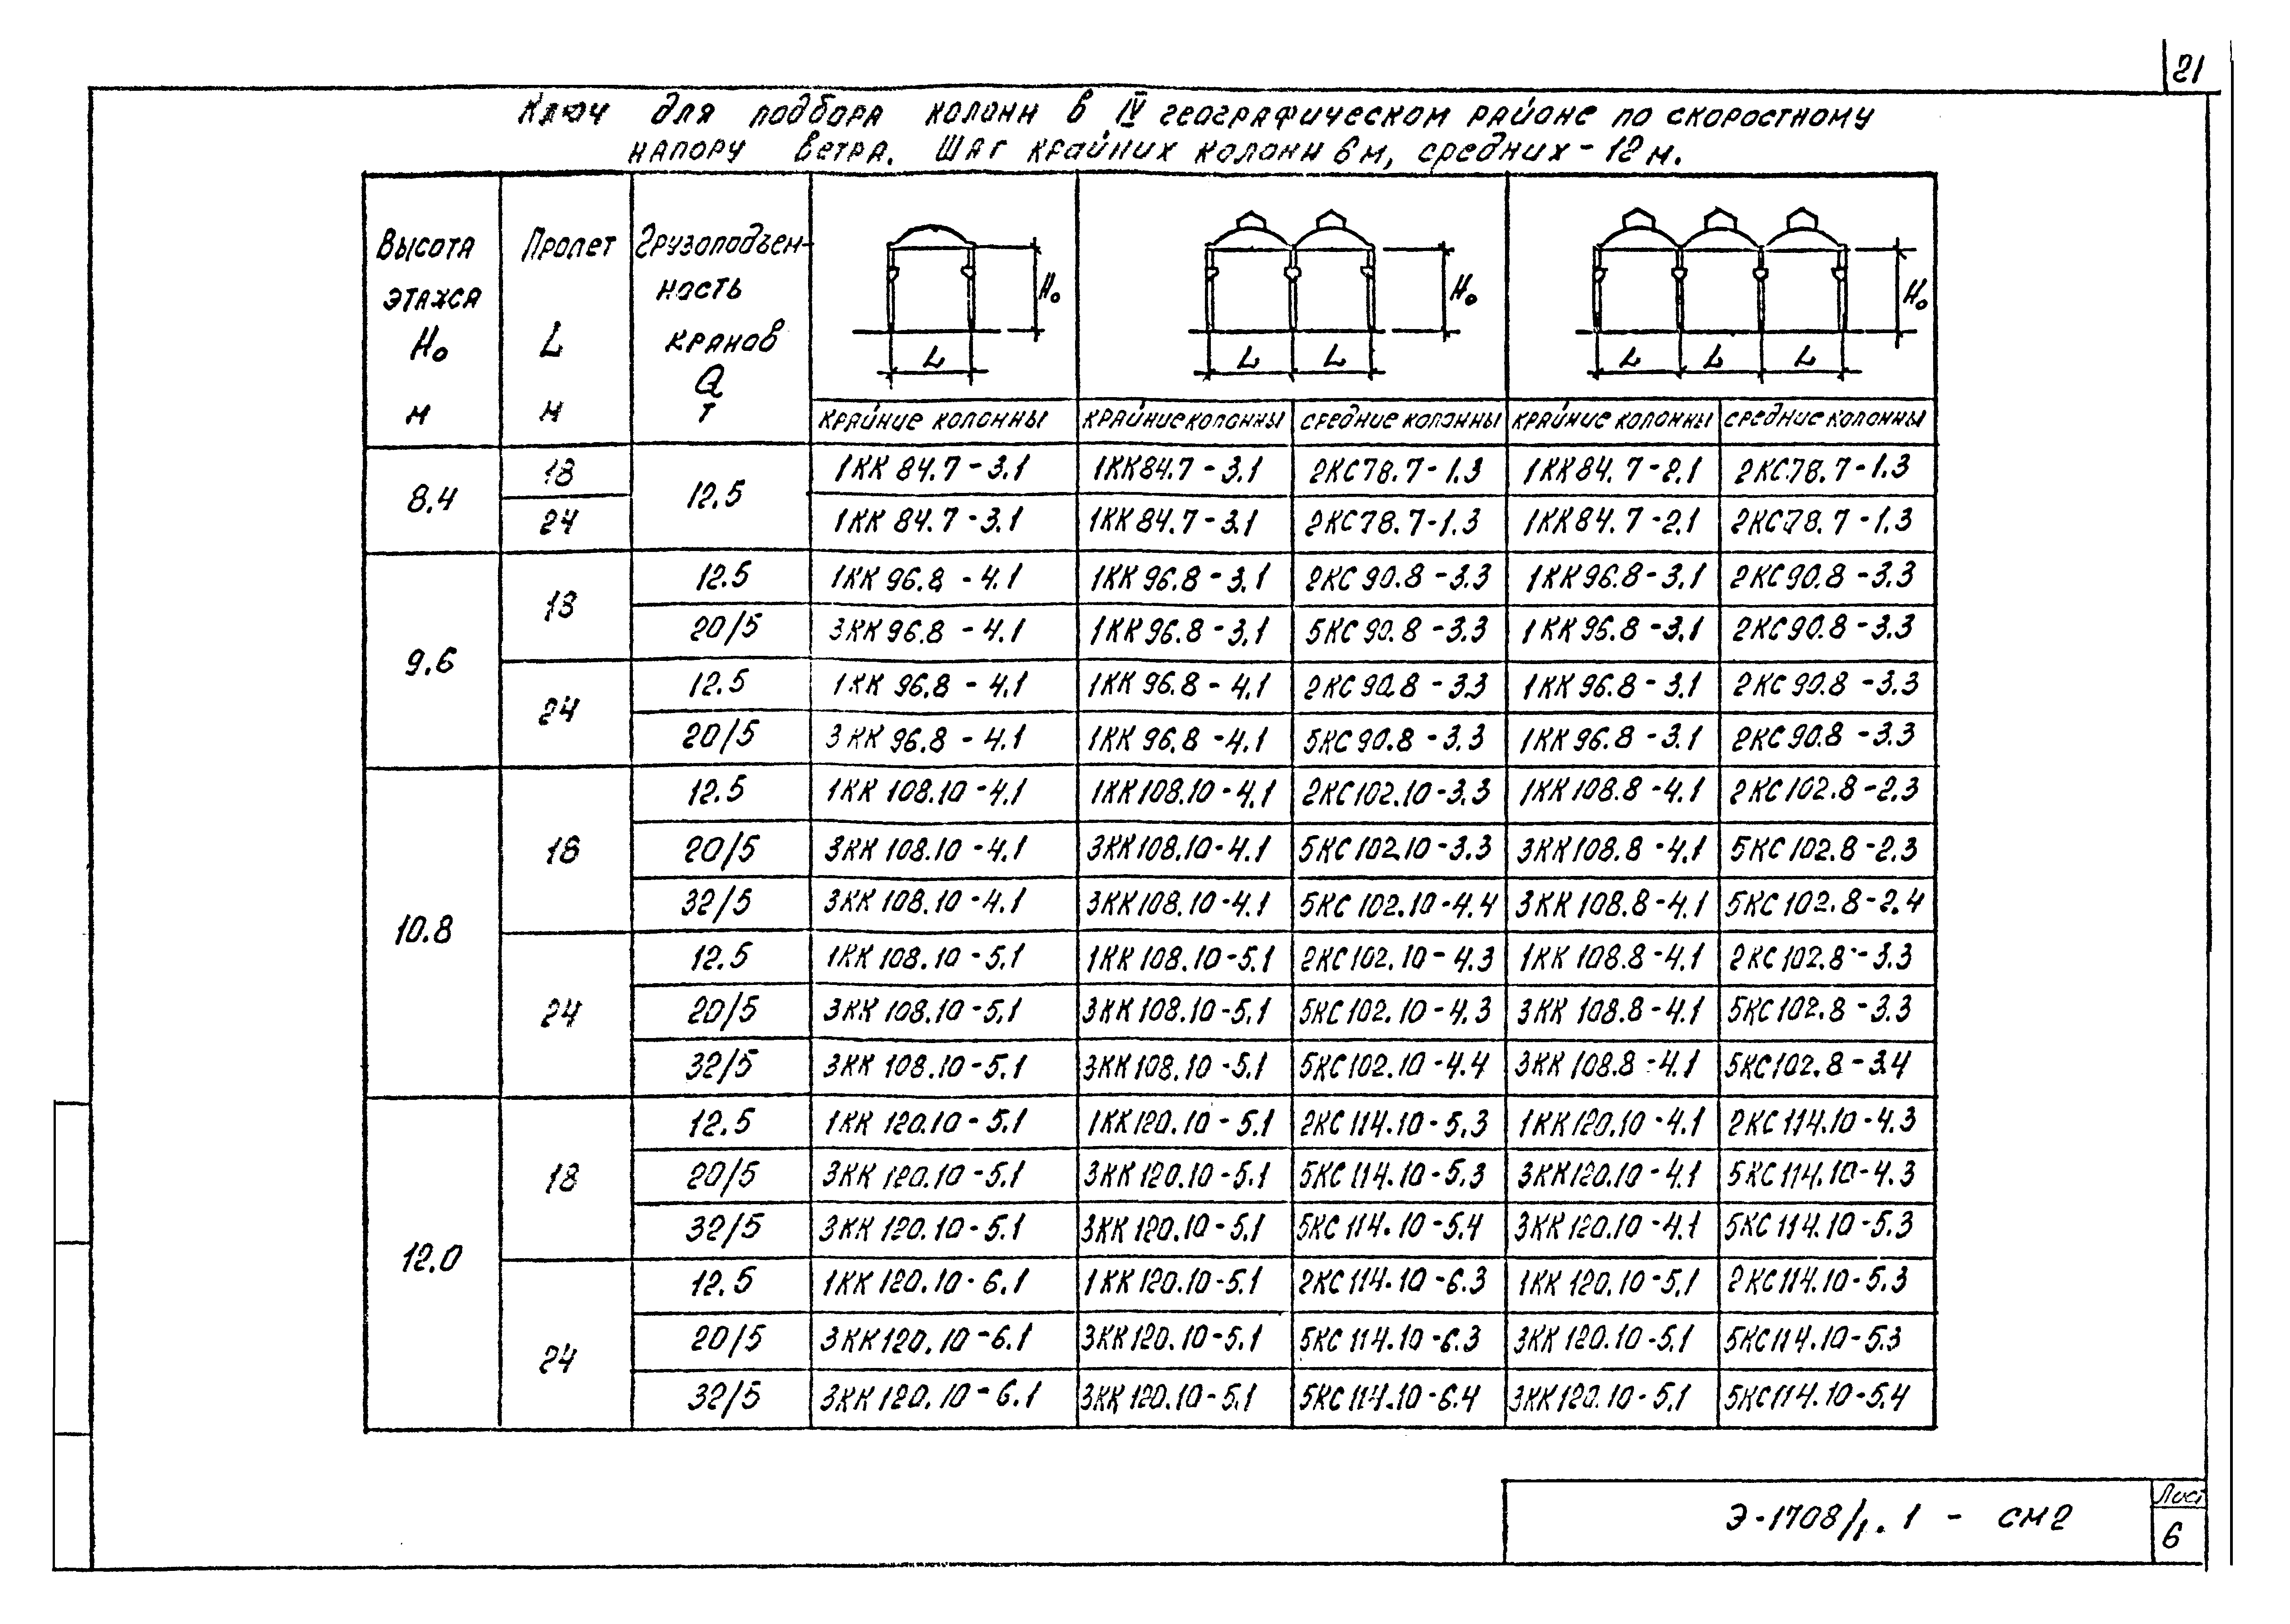 21
Ключ для подбора колонн в IV географическом районе по скоростному
напору ветра. Шаг крайних колонн 6м, средних - 12 м.
Высота этажа H₀ м
Пролет L м
Грузоподъем-
ность
кранов
Q
т
H₀ L
H₀ L L
H₀ L L L
крайние колонны крайние колонны средние колонны крайние колонны средние колонны
8.4 18 12.5 1КК 84.7 - 3.1 1КК84.7 - 3.1 2КС78.7 - 1.3 1КК84.7 - 2.1 2КС78.7 - 1.3
24 1КК 84.7 - 3.1 1КК 84.7 - 3.1 2КС78.7 - 1.3 1КК84.7 - 2.1 2КС78.7 - 1.3
9.6 18 12.5 1КК 96.8 - 4.1 1КК 96.8 - 3.1 2КС 90.8 - 3.3 1КК96.8 - 3.1 2КС90.8 - 3.3
20/5 3КК 96.8 - 4.1 1КК96.8 - 3.1 5КС90.8 - 3.3 1КК 96.8 - 3.1 2КС90.8 - 3.3
24 12.5 1КК 96.8 - 4.1 1КК 96.8 - 4.1 2КС90.8 - 3.3 1КК 96.8 - 3.1 2КС 90.8 - 3.3
20/5 3КК 96.8 - 4.1 1КК 96.8 - 4.1 5КС90.8 - 3.3 1КК 96.8 - 3.1 2КС90.8 - 3.3
10.8 18 12.5 1КК 108.10 - 4.1 1КК108.10 - 4.1 2КС102.10 - 3.3 1КК108.8 - 4.1 2КС102.8 - 2.3
20/5 3КК 108.10 - 4.1 3КК108.10 - 4.1 5КС102.10 - 3.3 3КК108.8 - 4.1 5КС102.8 - 2.3
32/5 3КК 108.10 - 4.1 3КК108.10 - 4.1 5КС102.10 - 4.4 3КК108.8 - 4.1 5КС102.8 - 2.4
24 12.5 1КК 108.10 - 5.1 1КК 108.10 - 5.1 2КС102.10 - 4.3 1КК 108.8 - 4.1 2КС102.8 - 3.3
20/5 3КК 108.10 - 5.1 3КК 108.10 - 5.1 5КС102.10 - 4.3 3КК 108.8 - 4.1 5КС102.8 - 3.3
32/5 3КК 108.10 - 5.1 3КК108.10 - 5.1 5КС102.10 - 4.4 3КК 108.8 - 4.1 5КС102.8 - 3.4
12.0 18 12.5 1КК 120.10 - 5.1 1КК120.10 - 5.1 2КС114.10 - 5.3 1КК120.10 - 4.1 2КС114.10 - 4.3
20/5 3КК 120.10 - 5.1 3КК120.10 - 5.1 5КС114.10 - 5.3 3КК120.10 - 4.1 5КС114.10 - 4.3
32/5 3КК 120.10 - 5.1 3КК120.10 - 5.1 5КС114.10 - 5.4 3КК120.10 - 4.1 5КС114.10 - 5.3
24 12.5 1КК 120.10 - 6.1 1КК120.10 - 5.1 2КС114.10 - 6.3 1КК120.10 - 5.1 2КС114.10 - 5.3
20/5 3КК120.10 - 6.1 3КК120.10 - 5.1 5КС114.10 - 6.3 3КК120.10 - 5.1 5КС114.10 - 5.3
32/5 3КК120.10 - 6.1 3КК120.10 - 5.1 5КС114.10 - 6.4 3КК120.10 - 5.1 5КС114.10 - 5.4
Э-1708/1.1 - СМ2
Лист
6